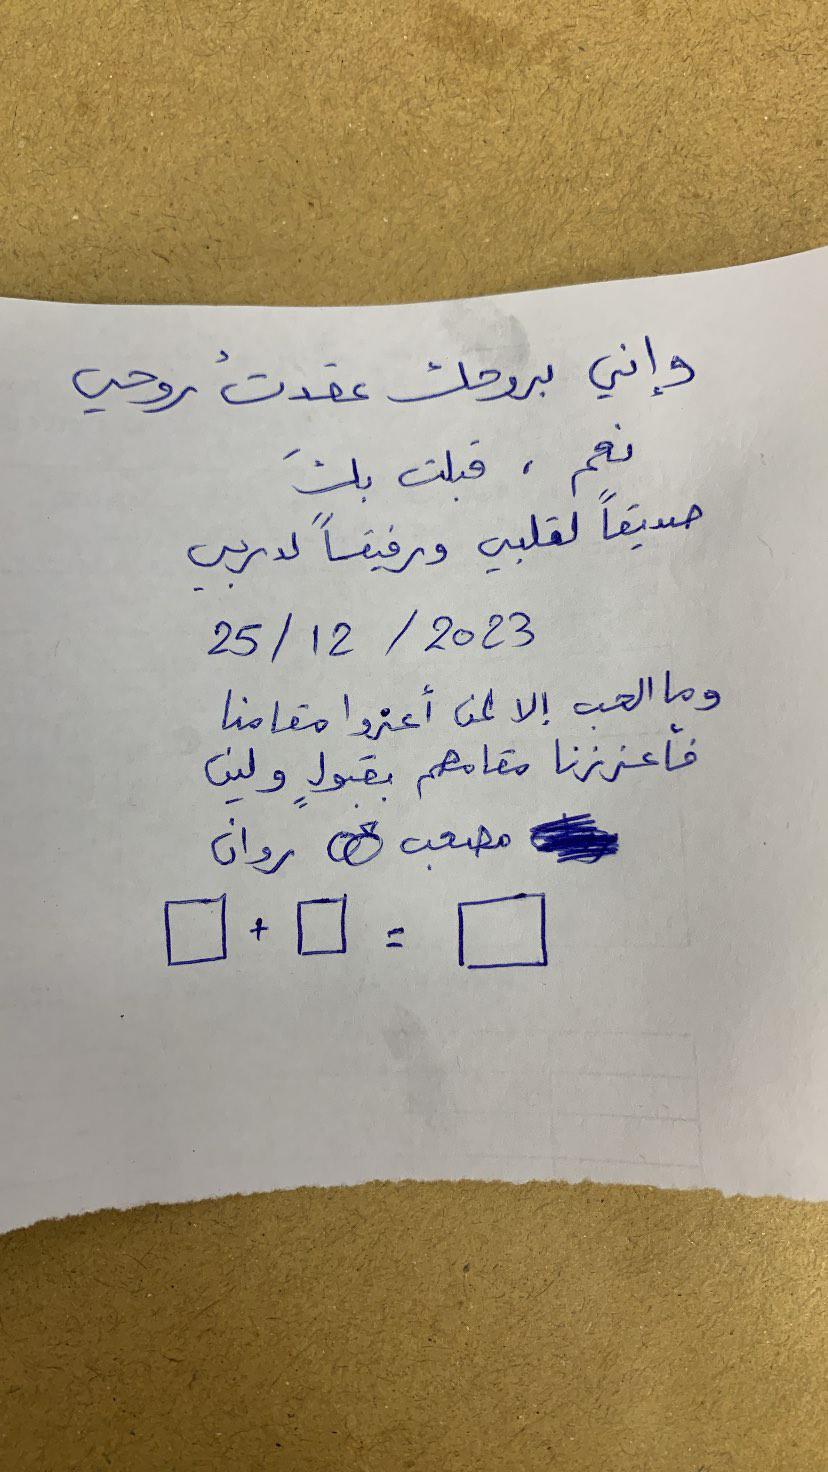 وإني بروحك عقدتُ روحي
نعم ، قبلت بكَ
صديقاً لقلبي ورفيقاً لدربي
25/12/2023
وما الحب إلا لمن أعزوا مقامنا
فأعززنا مقامهم بقبولٍ ولين
مصعب روان
+ =